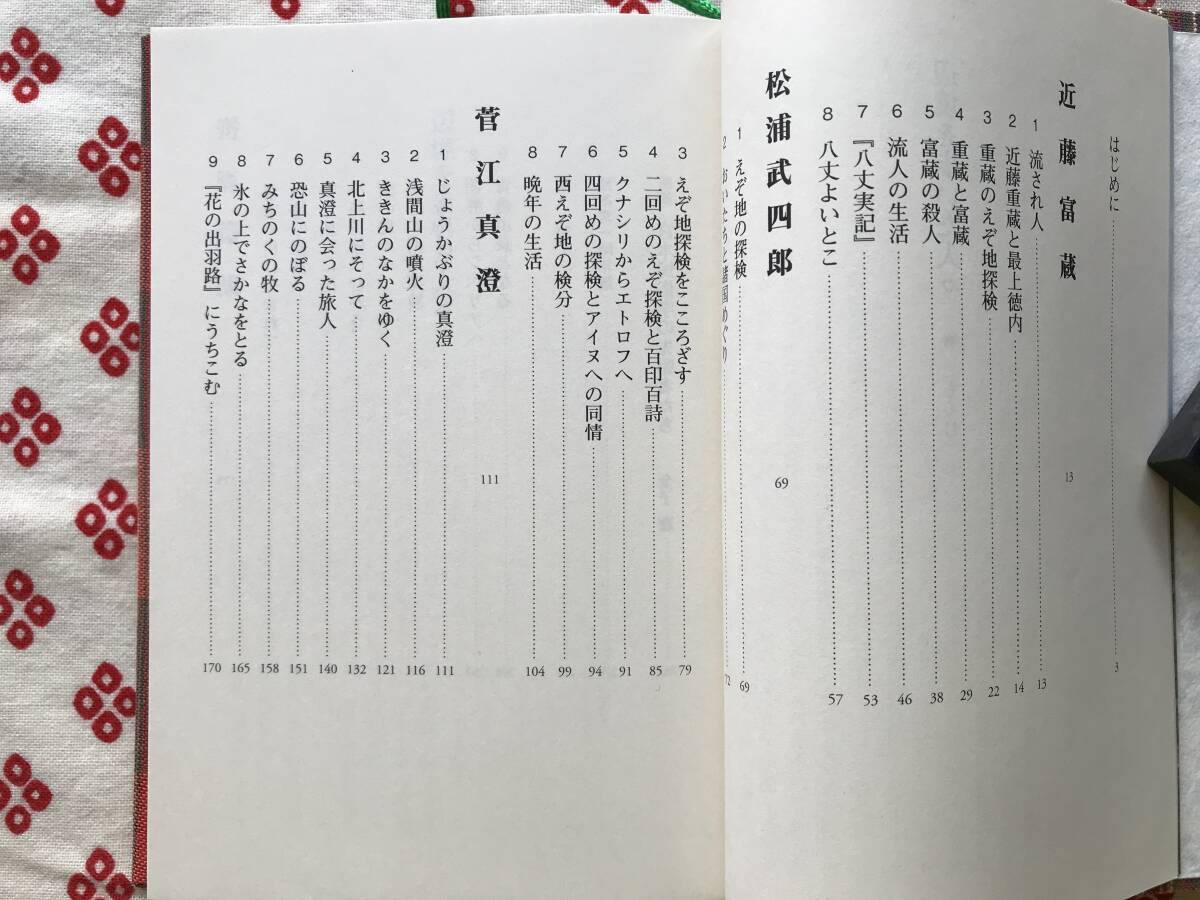 はじめに……3
近藤富蔵 13
1 流され人……13
2 近藤重蔵と最上徳内……14
3 重蔵のえぞ地探検……22
4 重蔵と富蔵……29
5 富蔵の殺人……38
6 流人の生活……46
7 『八丈実記』……53
8 八丈よいとこ……57
松浦武四郎 69
1 えぞ地の探検……69
2 おいたちと諸国めぐり……72
3 えぞ地探検をこころざす……79
4 二回めのえぞ探検と百印百詩……85
5 クナシリからエトロフへ……91
6 四回めの探検とアイヌへの同情……94
7 西えぞ地の検分……99
8 晩年の生活……104
菅江真澄 111
1 じょうかぶりの真澄……111
2 浅間山の噴火……116
3 ききんのなかをゆく……121
4 北上川にそって……132
5 真澄に会った旅人……140
6 恐山にのぼる……151
7 みちのくの牧……158
8 氷の上でさかなをとる……165
9 『花の出羽路』にうちこむ……170